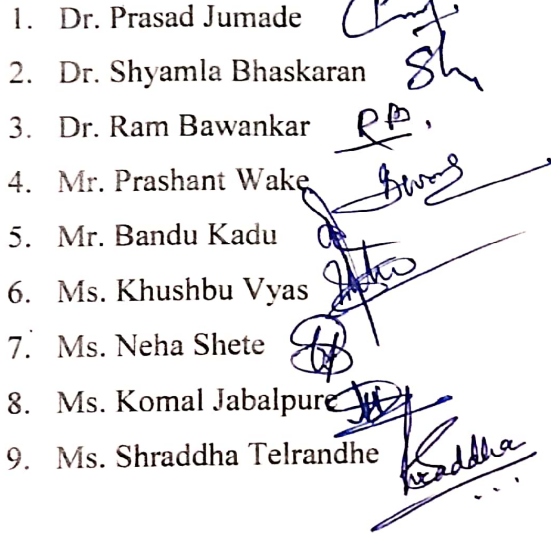 1. Dr. Prasad Jumade
2. Dr. Shyamla Bhaskaran Sh
3. Dr. Ram Bawankar RB.
4. Mr. Prashant Wake
5. Mr. Bandu Kadu
6. Ms. Khushbu Vyas
7. Ms. Neha Shete
8. Ms. Komal Jabalpure
9. Ms. Shraddha Telrandhe Shraddha